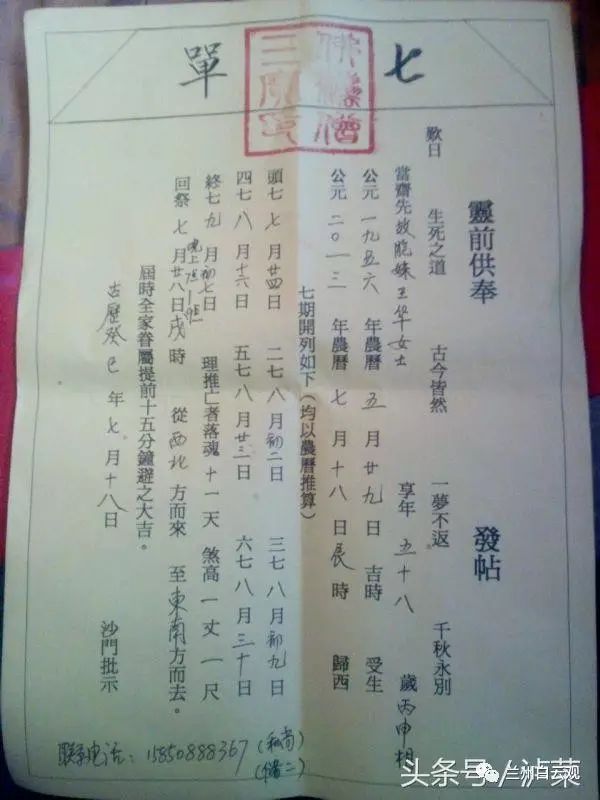 七單
靈前供奉 發帖
歎日 生死之道 古今皆然 一夢不返 千秋永別
當齋先故胞妹王华女士 享年五十八歲丙申相
公元一九五六年農曆五月廿九日吉時受生
公元二〇一三年農曆七月十八日辰時歸西
七期開列如下(均以農曆推算)
頭七七月廿四日 二七八月初二日 三七八月初九日
四七八月十六日 五七八月廿三日 六七八月三十日
終七九月初七日 理推亡者落魂十一天煞高一丈一尺
晚上7点-9点
回祭七月廿八日戌時從西北方而來至東南方而去。
屆時全家眷屬提前十五分鐘避之大吉。
古歷癸巳年七月十八日 沙門批示
联系电话:15850888367(和尚)
头条号
兰州白云观